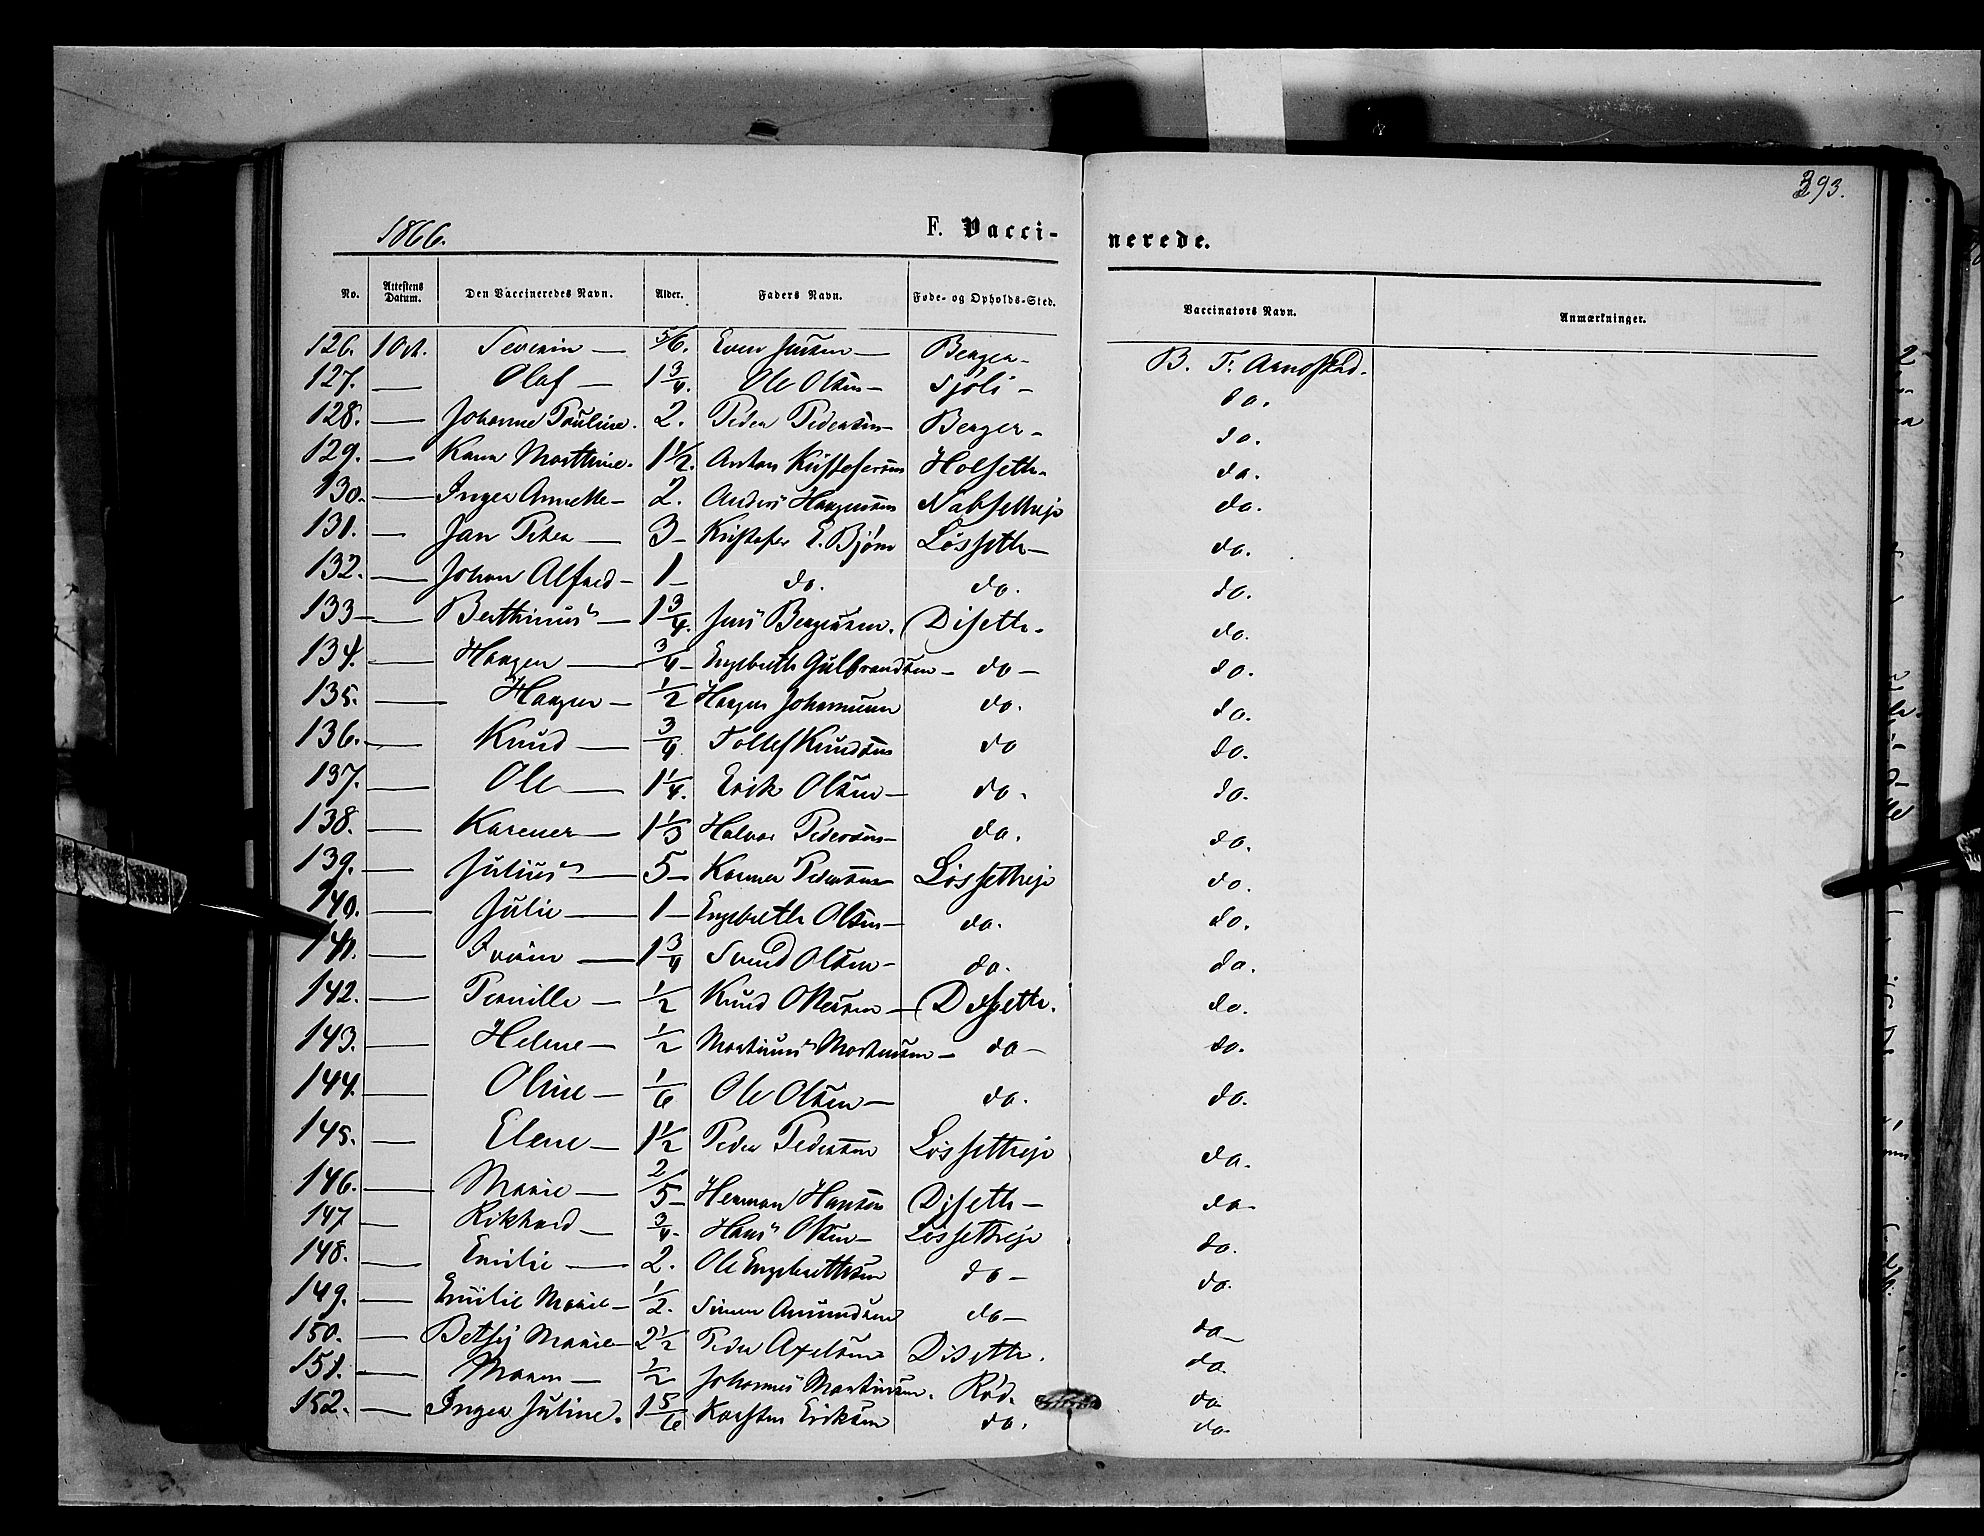 393.
1866.
F. Vacci-
nerede.
No. Attestens Datum. Den Vaccineredes Navn. Alder. Faders Navn. Føde- og Opholds-Sted. Vaccinators Navn. Anmærkninger.
126. 1 Oct. Severin — 5/6. Even — Berger - B. T.
127. — Olaf — 1 3/4. Ole Olsen — Sjøli - do.
128. — Johanne Pauline. 2. Peder Pedersen — Berger - do.
129. — Karen Marthine. 1 1/2. Anton Kristofersen Holseth - do.
130. — Inger Annette — 2. Anders Haagensen do.
131. — Jan Peter — 3 — Kristofer E. Bjørn Løsseth — do.
132. — Johan Alfred — 1 — do. do. do.
133 — Berthinus — 1 3/4. Jens Bergersen. Diseth - do.
134. — Haagen — 3/4 — Engebreth Gulbrandsen — do — do.
135. — Haagen — 1/2 Haagen Johannesen do. do.
136. — Knud — 3/4 Tollef Knudsen do do.
137. — Ole — 1 1/4. Erik Olsen — do. do.
138. — Karener — 1 1/3 Halvor Pedersen — do. do.
139. — Julius — 5 — Karener Pedersen Løssetheje do.
140. — Julie — 1 — Engebreth Olsen — do. do.
141. — — 1 3/4 Svend Olsen — do. do.
142. — Pernille — 1/2 Knud Ottersen — Disseth. do.
143. — Helene — 1/2 Martinus Martinsen — do — do.
144. — Oline — 1/6 Ole Olsen — do. do.
145. — Elene — 1 1/2 Peder Pedersen Løssetheje do.
146. — Marie — 2/5 — Herman Hansen Diseth — do.
147 — Rikhard — 3/4. Hans Olsen — Løssetheje do.
148. — Emilie — 2. Ole Engebrethsen do — do.
149. — Emilie Marie — 1/2. Simen Amundsen do — do —
150. — Betsy Marie — 2 1/2 Peder Axelsen Diseth. do.
151. — Maren — 1/2 Johannes Martinsen. Rød. do
152. — Inger Juline. 1 5/6 Karsten Eriksen do. do.